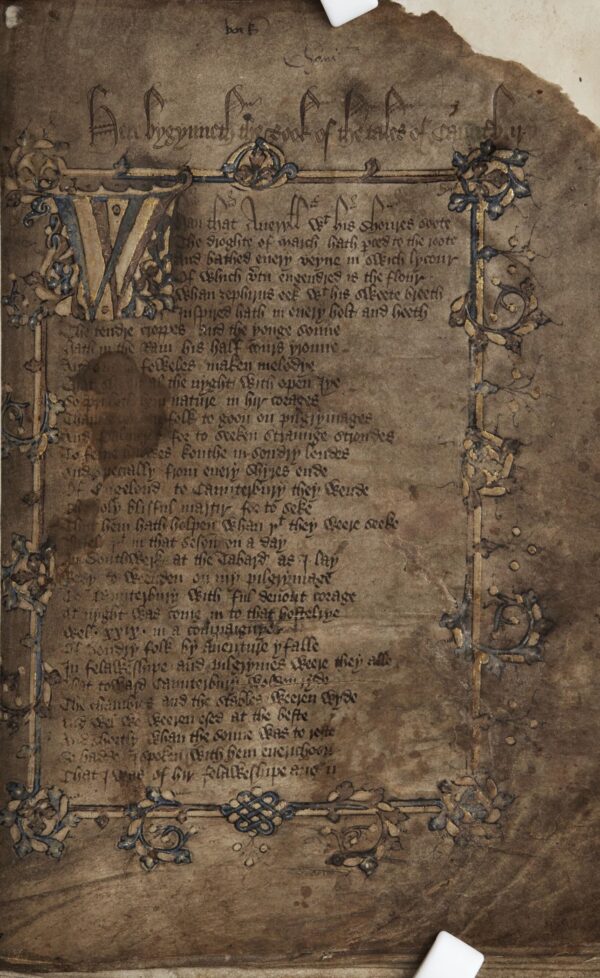 Here bygynneth the Book of the tales of Caunterbury
Whan that Aueryll wt his shoures soote
The droghte of march hath perced to the roote
And bathed euery veyne in swich lycour
Of which vtu engendred is the flour
Whan zephirus eek wt his sweete breeth
Inspired hath in euery holt and heeth
The tendre croppes and the yonge sonne
Hath in the Ram his half cours yronne
And foweles maken melodye
That al the nyght with open Iye
So hem nature in hir corages
folk to goon on pilgrymages
And for to seeken straunge strondes
To ferne kouthe in sondry londes
And specially from euery shyres ende
Of Engelond to Caunterbury they wende
The holy blisful martir for to seke
That hem hath holpen whan þt they weere seeke
Bifel þt in that seson on a day
In Southwerk at the Tabard as I lay
Redy to wenden on my pilgrymage
To Caunterbury with ful deuout corage
At nyght was come in to that hostelrye
Wel .xxix. in a compaignye
Of sondry folk by auenture yfalle
In felaweshipe and pilgrymes weere they alle
That toward Caunterbury wolden ryde
The chambres and the stables weeren wyde
And wel we weeren esed at the beste
And shortly whan the sonne was to reste
So hadde I spoken with hem euerichoon
That I was of hir felaweshipe